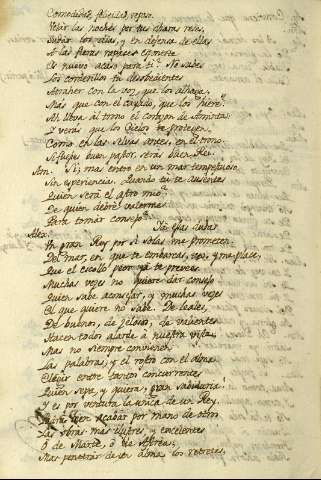 Comodidad, felicidad, reposo.
Velar las noches por tus charas reses,
Sudar por ellas, y en defensa de ellas
A las fieras rapaces exponerte
Es nuevo acaso para ti? No sabes
Los corderillos tu desobedientes
Atraher con la voz, que los alhaga,
Más que con el cayado, que los hiere?
Ah, lleva al trono el corazon de Aminta
Y verás que los Dioses te protegen,
Como en las selvas antes, en el trono.
Si fuiste buen pastor, serás buen Rey.
Am. Si; mas entro en un mar tempestuoso,
Sin esperiencia. Quando tu te ausentes
Quien será el astro mio?
De quien debré valerme
Para tomar consejo?
Alex. Ya esas dudas
Un gran Rey por si solas me prometen.
Del mar, en que te embarcas, veo, y me place,
Que el escollo peor ya te prevees
Muchas vezes no quiere dar consejo
Quien sabe aconsejar, y muchas vezes
El que quiere no sabe. De leales,
De buenos, de zelosos, de valientes
Hacen todos alarde á nuestra vista;
Mas no siempre convienen
Las palabras, y el rostro con el alma.
Elegir entre tantos concurrentes
Quien sepa, y quiera, gran sabiduria:
Y es por ventura la unica de un Rey.
acabar por mano de otro
Las obras mas ilustres y excelentes
O de Marte, ó de Astrea;
Mas penetrar de un alma los retretes,